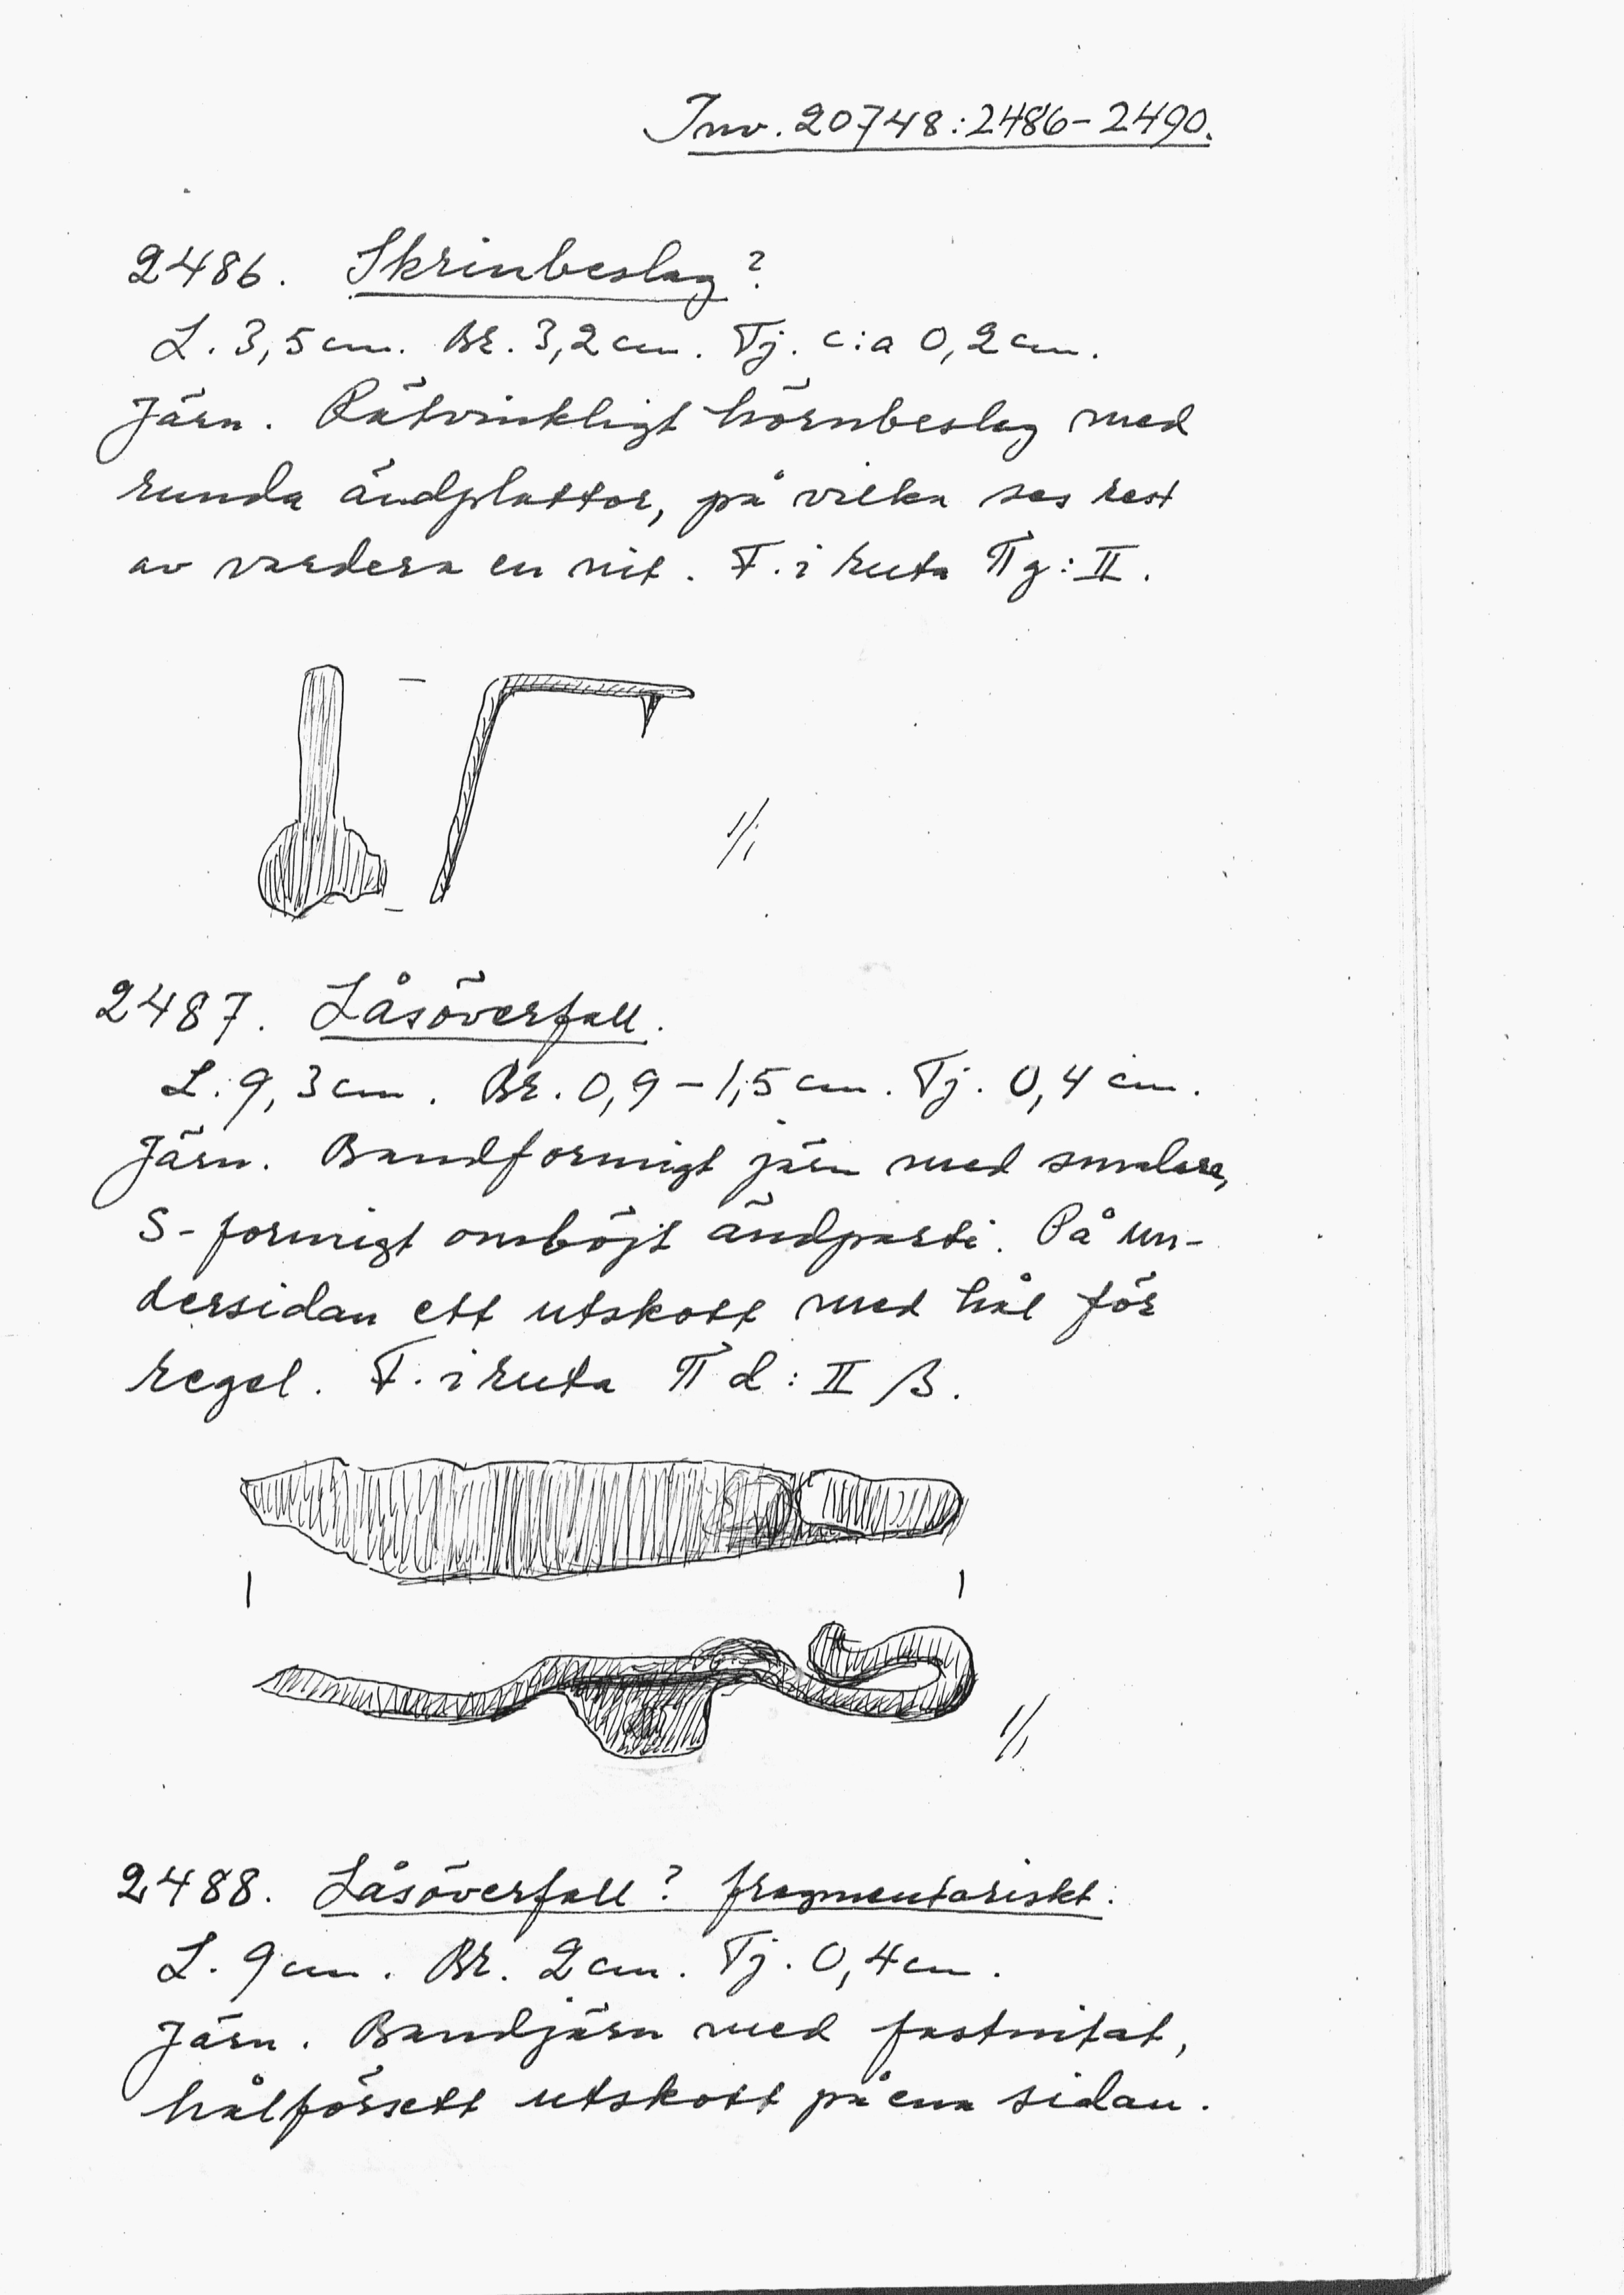 Inv. 20748:2486-2490.
2486. Skrinbeslag?
L. 3,5 cm. Br. 3,2 cm. Tj. c:a 0,2 cm.
Järn. Rätvinkligt hörnbeslag med
runda ändplattor, på vilka ses rest
av vardera en nit. F. i ruta Π g: II.
1/1
2487. Låsöverfall.
L. 9,3 cm. Br. 0,9-1,5 cm. Tj. 0,4 cm.
Järn. Bandformigt järn med smalare,
S-formigt omböjt ändparti. På un-
dersidan ett utskott med hål för
regel. F. i ruta Π d: II β.
1/1
2488. Låsöverfall? fragmentariskt.
L. 9 cm. Br. 2 cm. Tj. 0,4 cm.
Järn. Bandjärn med fastnitat,
hålförsett utskott på ena sidan.